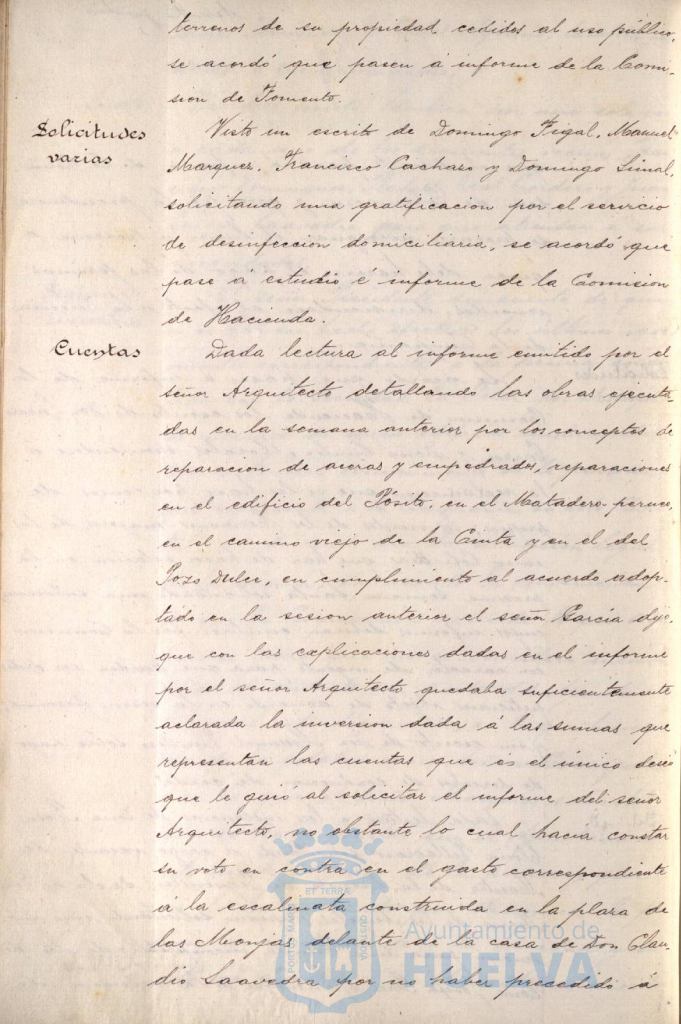 terrenos de su propiedad, cedidos al uso público,
se acordó que pasen á informe de la Comi-
sion de Fomento.
Solicitudes
varias
Visto un escrito de Domingo Figal, Manuel
Marquez, Francisco Cacharo y Domingo Simal,
solicitando una gratificacion por el servicio
de desinfeccion domiciliaria, se acordó que
pase á estudio é informe de la Comision
de Hacienda.
Cuentas
Dada lectura al informe emitido por el
señor Arquitecto detallando las obras ejecuta-
das en la semana anterior por los conceptos de
reparacion de aceras y empedrados, reparaciones
en el edificio del Pósito, en el Matadero
en el camino viejo de la Cinta y en el del
Pozo Dulce, en cumplimiento al acuerdo adop-
tado en la sesion anterior el señor García dijo
que con las explicaciones dadas en el informe
por el señor Arquitecto quedaba suficientemente
aclarada la inversion dada á las sumas que
representan las cuentas que es el único deseo
que le guió al solicitar el informe del señor
Arquitecto, no obstante lo cual hacía constar
su voto en contra en el gasto correspondiente
á la escalinata construida en la plaza de
las Monjas delante de la casa de Don Clau-
dio Saavedra por no haber precedido á
PORTUS MARIS
ET TERRÆ
CUSTODIA
Ayuntamiento de
HUELVA